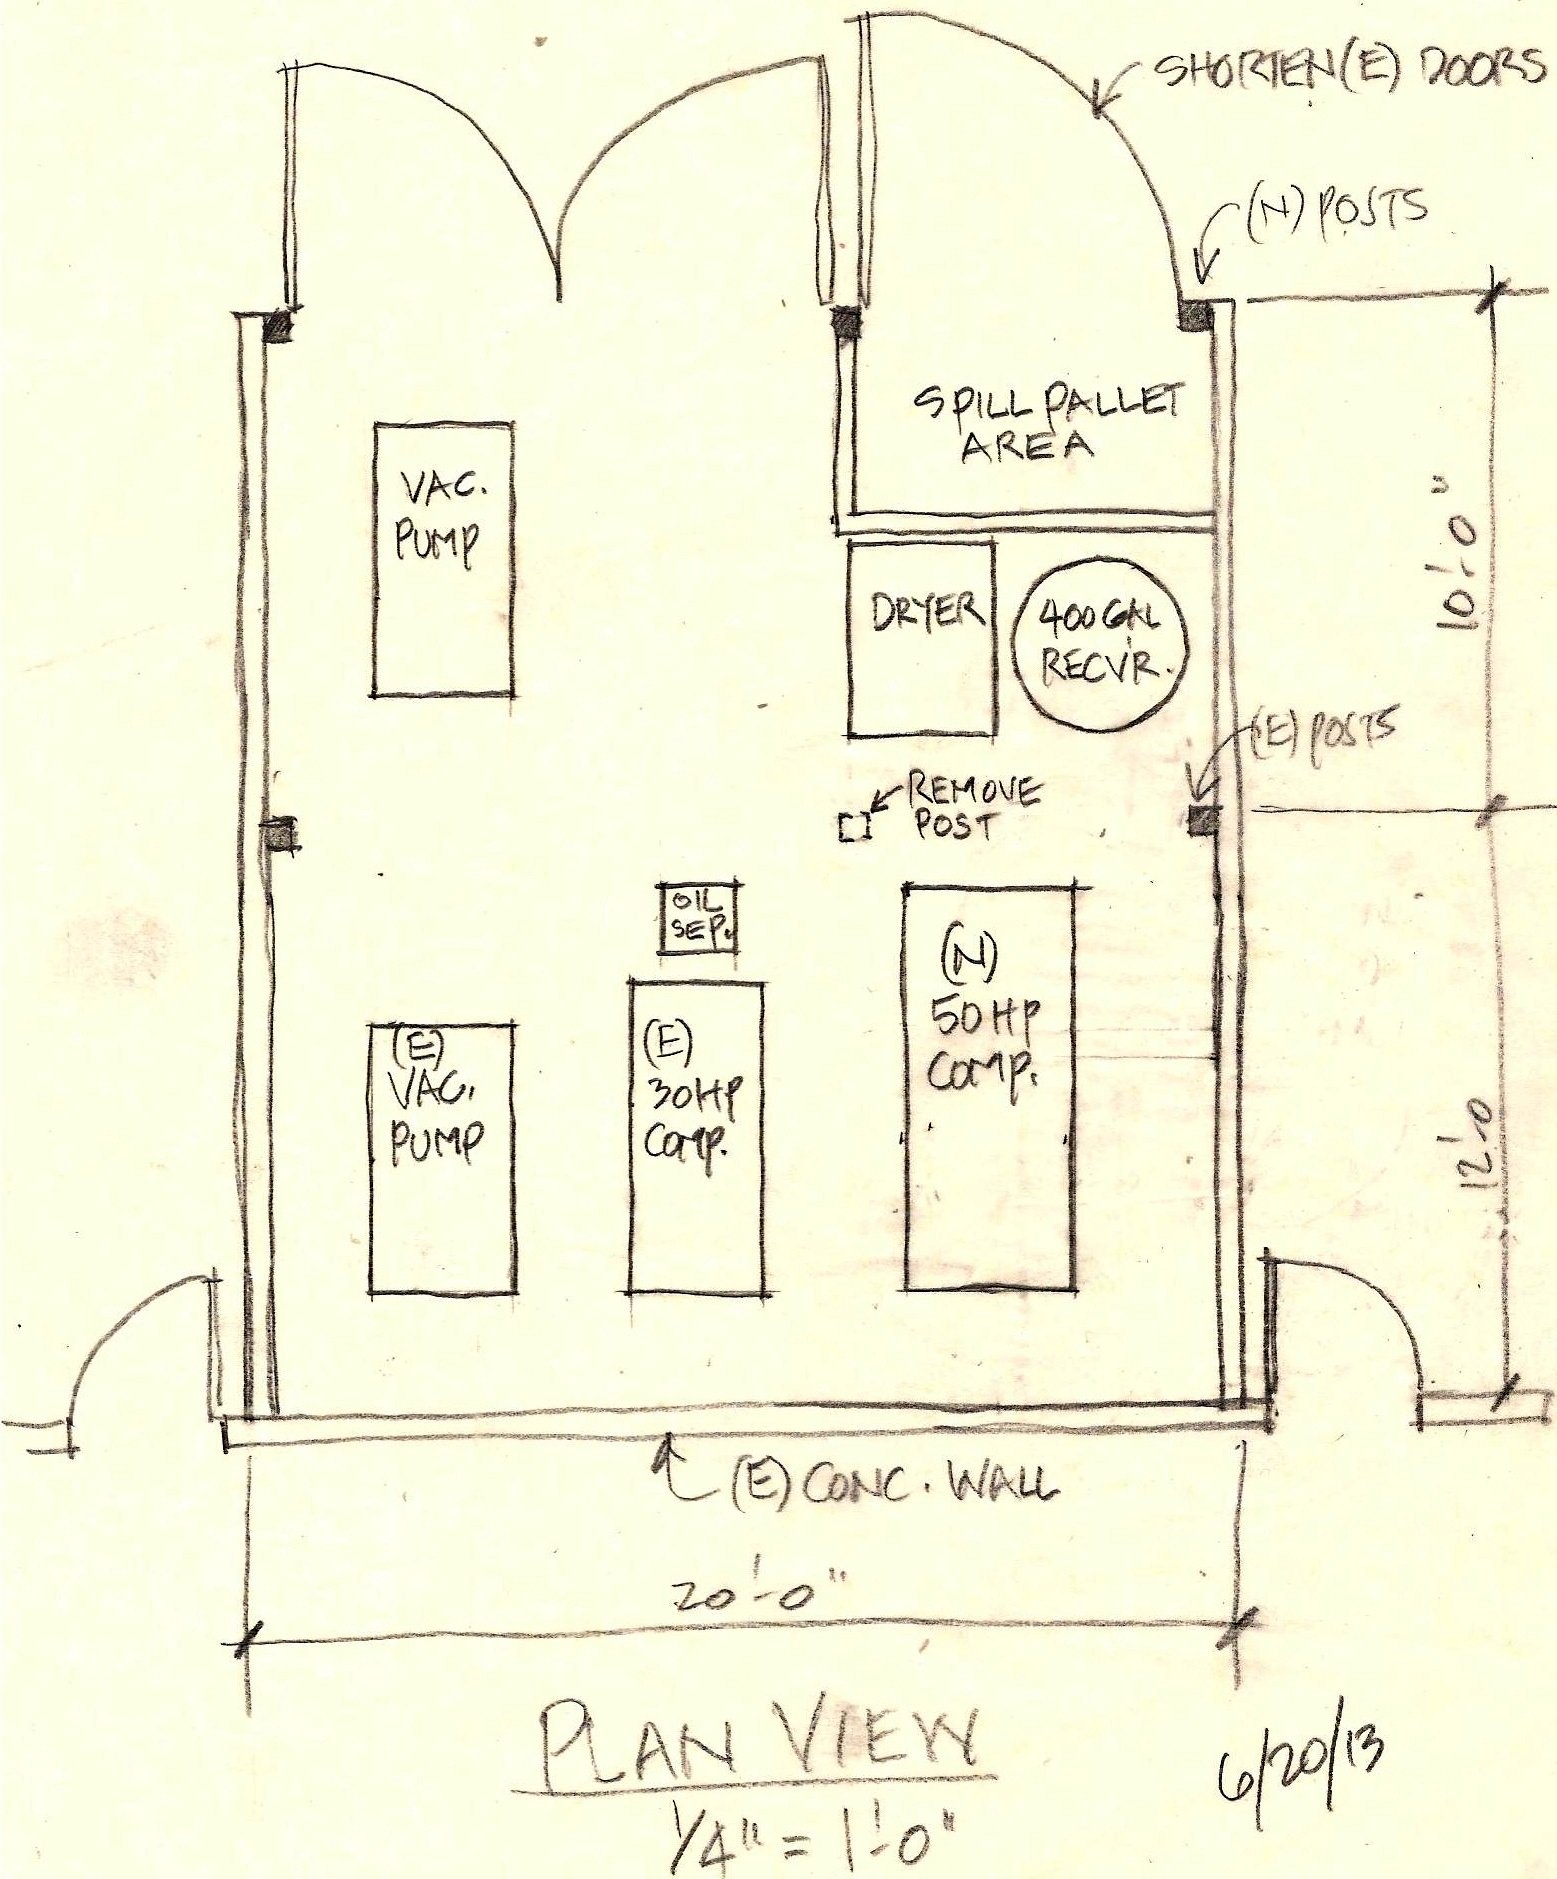 SHORTEN (E) DOORS
(N) POSTS
SPILL PALLET
AREA
VAC.
PUMP
10'-0"
DRYER
400 GAL
RECV'R.
(E) POSTS
REMOVE
POST
OIL
SEP.
(N)
50 HP
COMP.
(E)
VAC.
PUMP
(E)
30 HP
COMP.
12'-0
(E) CONC. WALL
20'-0"
PLAN VIEW
1/4" = 1'-0"
6/20/13